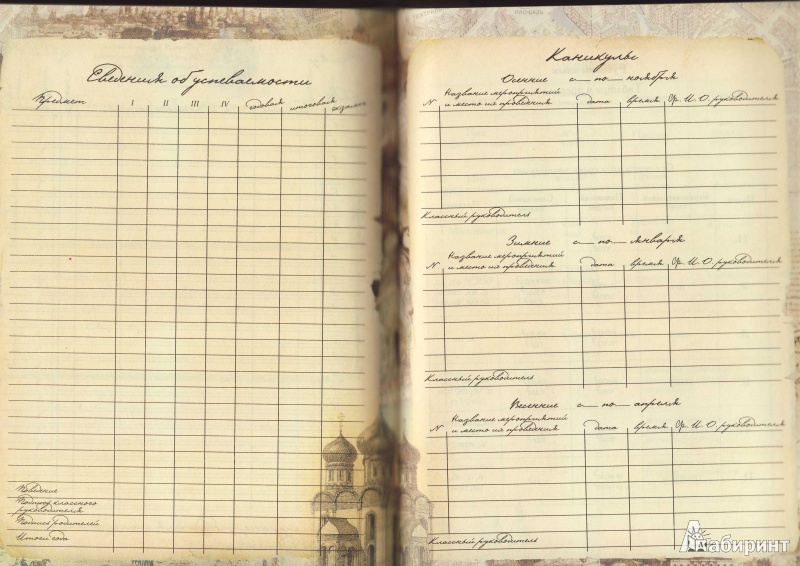 Сведения об успеваемости
Предмет I II III IV годовая итоговая экзамен
Поведение
Подпись классного
руководителя
Подпись родителей
Итоги года
Каникулы
Осенние с__ по__ ноября
N Название мероприятий и место их проведения дата время Ф. И. О. руководителя
Классный руководитель
Зимние с__ по__ января
N Название мероприятий и место их проведения дата время Ф. И. О. руководителя
Классный руководитель
Весенние с__ по__ апреля
N Название мероприятий и место их проведения дата время Ф. И. О. руководителя
Классный руководитель
Лабиринт